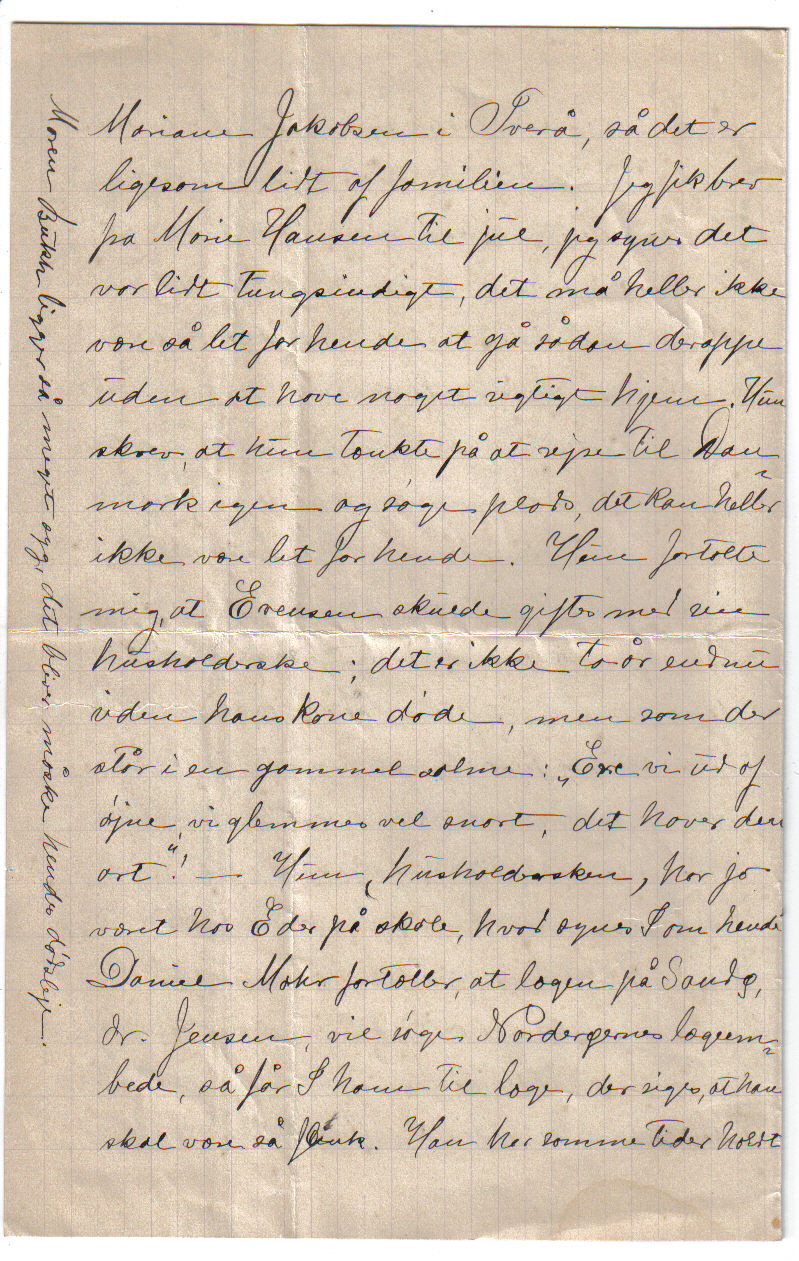 Mariane Jakobsen i Tverå, så det er
ligesom lidt af familien. Jeg fik brev
fra Marie Hansen til jul, jeg synes det
var lidt tungsindigt, det må heller ikke
være så let for hende at gå sådan deroppe
uden at have noget rigtigt hjem. Hun
skrev, at hun tænkte på at rejse til Dan-
mark igen og søge plads, det kan heller
ikke være let for hende. Hun fortalte
mig, at Evensen skulde giftes med sin
husholderske; det er ikke to år endnu
siden hans kone døde, men som der
står i en gammel salme: „Ere vi ud af
øjne, vi glemmes vel snart, det haver den
art“! — Hun (husholdersken) har jo
været hos Eder på skole, hvad synes I om hende
Daniel Mohr fortæller, at lægen på Sandø,
dr. Jensen, vil søge Norderøernes lægeem-
bede, så får I ham til læge, der siges, at han
skal være så flink. Han har somme tider holdt
Maren Bukh ligger så meget syg, det bliver måske hendes dødsleje.